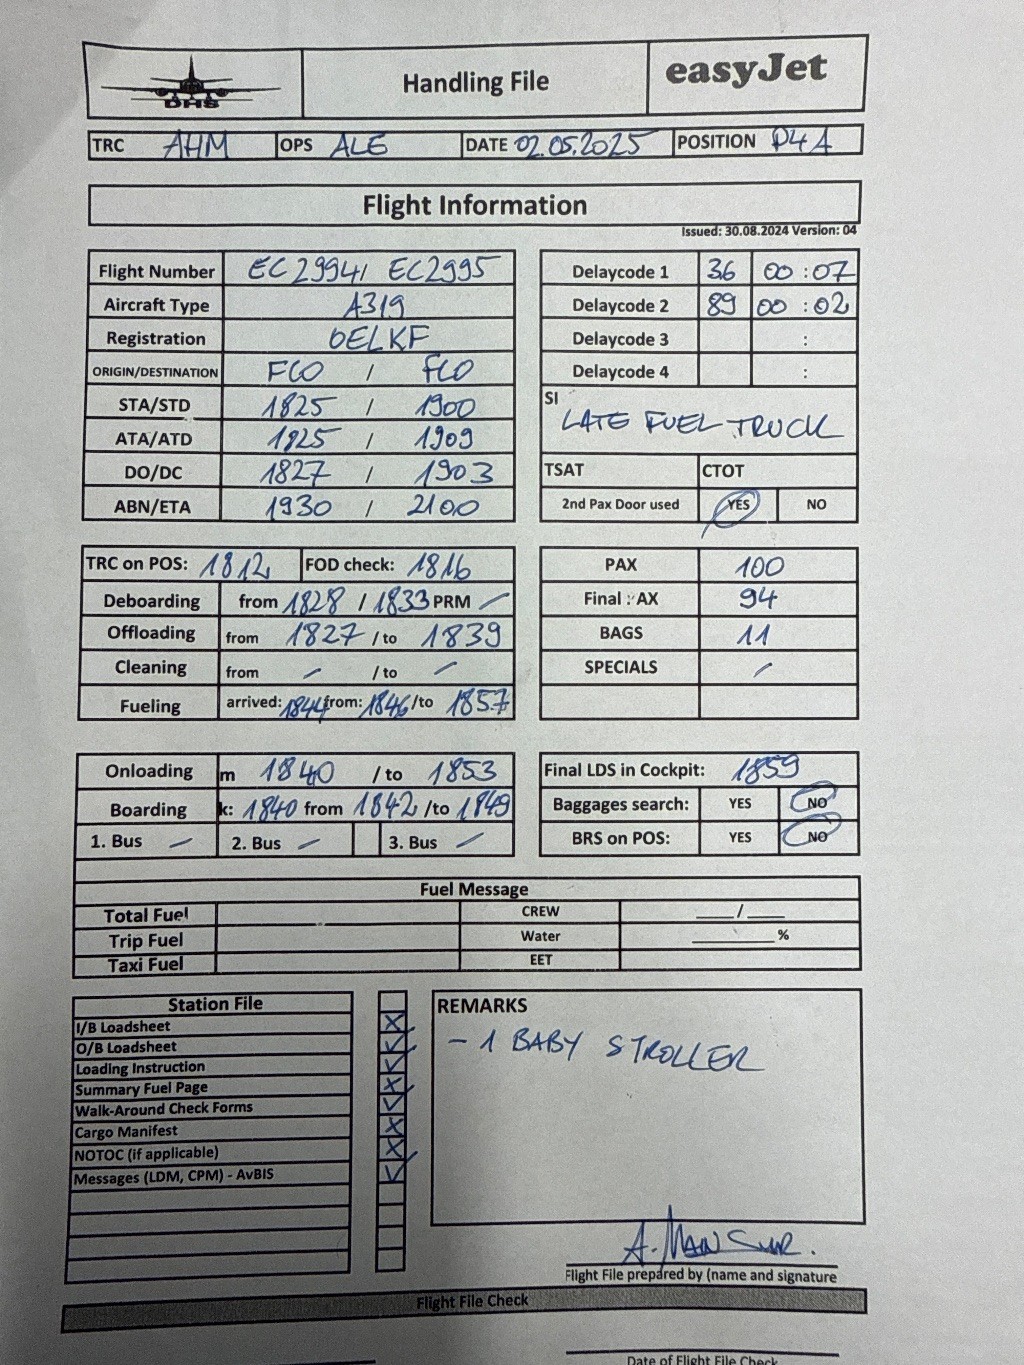 DHS
Handling File
easyJet
TRC AHM OPS ALE DATE 02.05.2025 POSITION P4A
Flight Information
Issued: 30.08.2024 Version: 04
Flight Number EC2994 / EC2995
Aircraft Type A319
Registration OELKF
ORIGIN/DESTINATION FCO / FCO
STA/STD 1825 / 1900
ATA/ATD 1825 / 1909
DO/DC 1827 / 1903
ABN/ETA 1930 / 2100
Delaycode 1 36 00 : 07
Delaycode 2 89 00 : 02
Delaycode 3 :
Delaycode 4 :
SI
LATE FUEL TRUCK
TSAT CTOT
2nd Pax Door used YES NO
TRC on POS: 1812 FOD check: 1816
Deboarding from 1828 / 1833 PRM /
Offloading from 1827 / to 1839
Cleaning from / / to /
Fueling arrived: 1844 from: 1846 /to 1857
PAX 100
Final :AX 94
BAGS 11
SPECIALS /
Onloading m 1840 / to 1853
Boarding k: 1840 from 1842 /to 1849
1. Bus — 2. Bus — 3. Bus —
Final LDS in Cockpit: 1859
Baggages search: YES NO
BRS on POS: YES NO
Fuel Message
Total Fuel CREW ___/___
Trip Fuel Water ______%
Taxi Fuel EET
Station File
I/B Loadsheet X
O/B Loadsheet ✓
Loading Instruction ✓
Summary Fuel Page X
Walk-Around Check Forms ✓
Cargo Manifest X
NOTOC (if applicable) X
Messages (LDM, CPM) - AvBIS ✓
REMARKS
- 1 BABY STROLLER
A. MANSUR.
Flight File prepared by (name and signature
Flight File Check
Date of Flight File Check